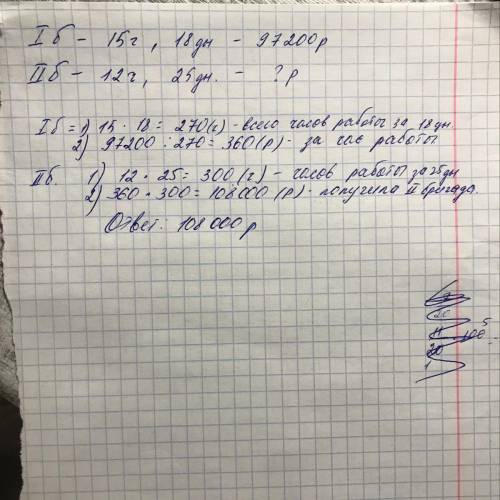 I б - 15 г, 18 дн - 97200 р
II б - 12 г, 25 дн. - ? р
I б = 1) 15 · 18 = 270 (г) - всего часов работы за 18 дн.
2) 97200 : 270 = 360 (р) - за час работы
II б. 1) 12 · 25 = 300 (г) - часов работы за 25 дн
2) 360 · 300 = 108000 (р) - получила II бригада.
Ответ: 108 000 р